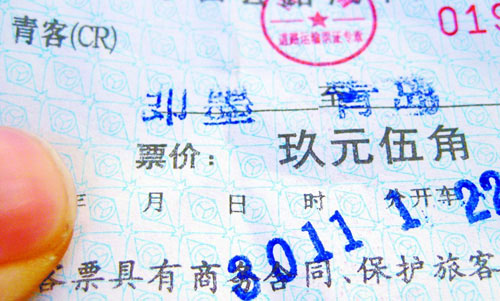 019
道路运输票证专章
青客(CR)
即墨 至 青岛
票价: 玖元伍角
年 月 日 时 分开车
3011 1 22
客票具有商务合同、保护旅客